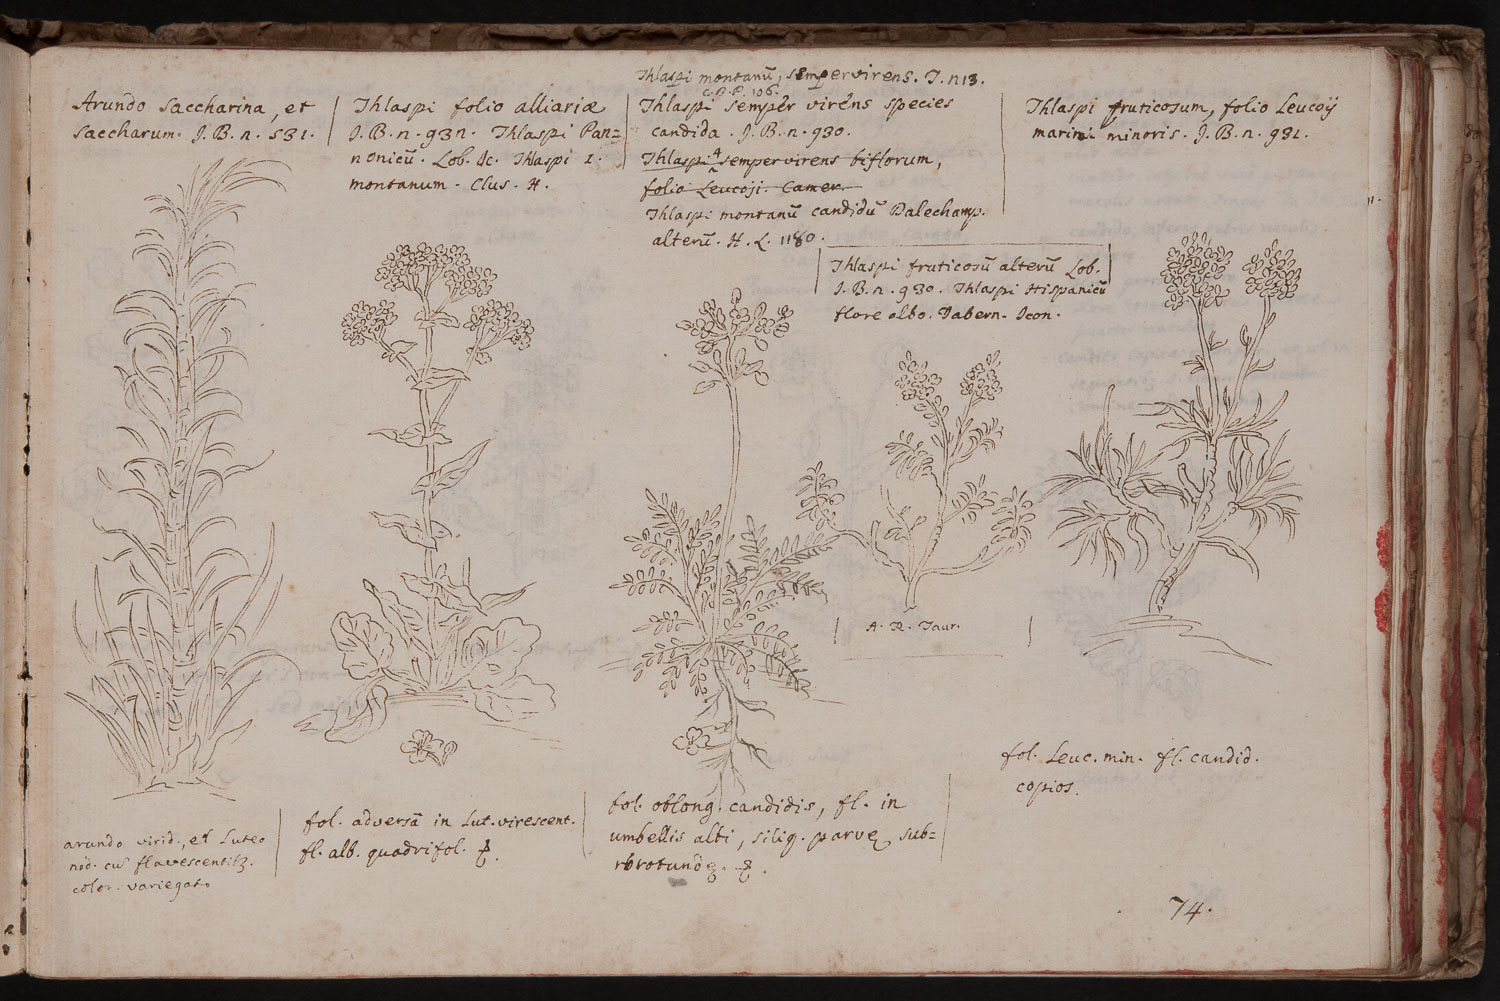 Arundo Saccharina, et
Saccharum. J. B. n. 531.
Thlaspi folio alliariæ
J. B. n. 932. Thlaspi Pan=
nonicū. Lob. Ic. Thlaspi 1.
montanum. Clus. H.
Thlaspi montanū, sempervirens. J. n13.
C. B. P. 106.
Thlaspi semper virens species
candida. J. B. n. 930.
Thlaspi 4 sempervirens biflorum,
folio Leucoji. Camer.
Thlaspi montanū candidū Dalechamp.
alterū. H. L. 1180.
Thlaspi fruticosū alterū Lob.
J. B. n. 930. Thlaspi Hispanicū
flore albo. Tabern. Icon.
Thlaspi fruticosum, folio Leucoij
marini minoris. J. B. n. 931.
A. R. Taur.
arundo virid., et Luteo
nod. cu flavescentib.
color. variegat.
fol. adversā in Lut. virescent.
fl. alb. quadrifol. ♃.
fol. oblong. candidis, fl. in
umbellis albi, siliq. parvę sub=
rotundę. ♃.
fol. Leuc. min. fl. candid.
copios.
74.